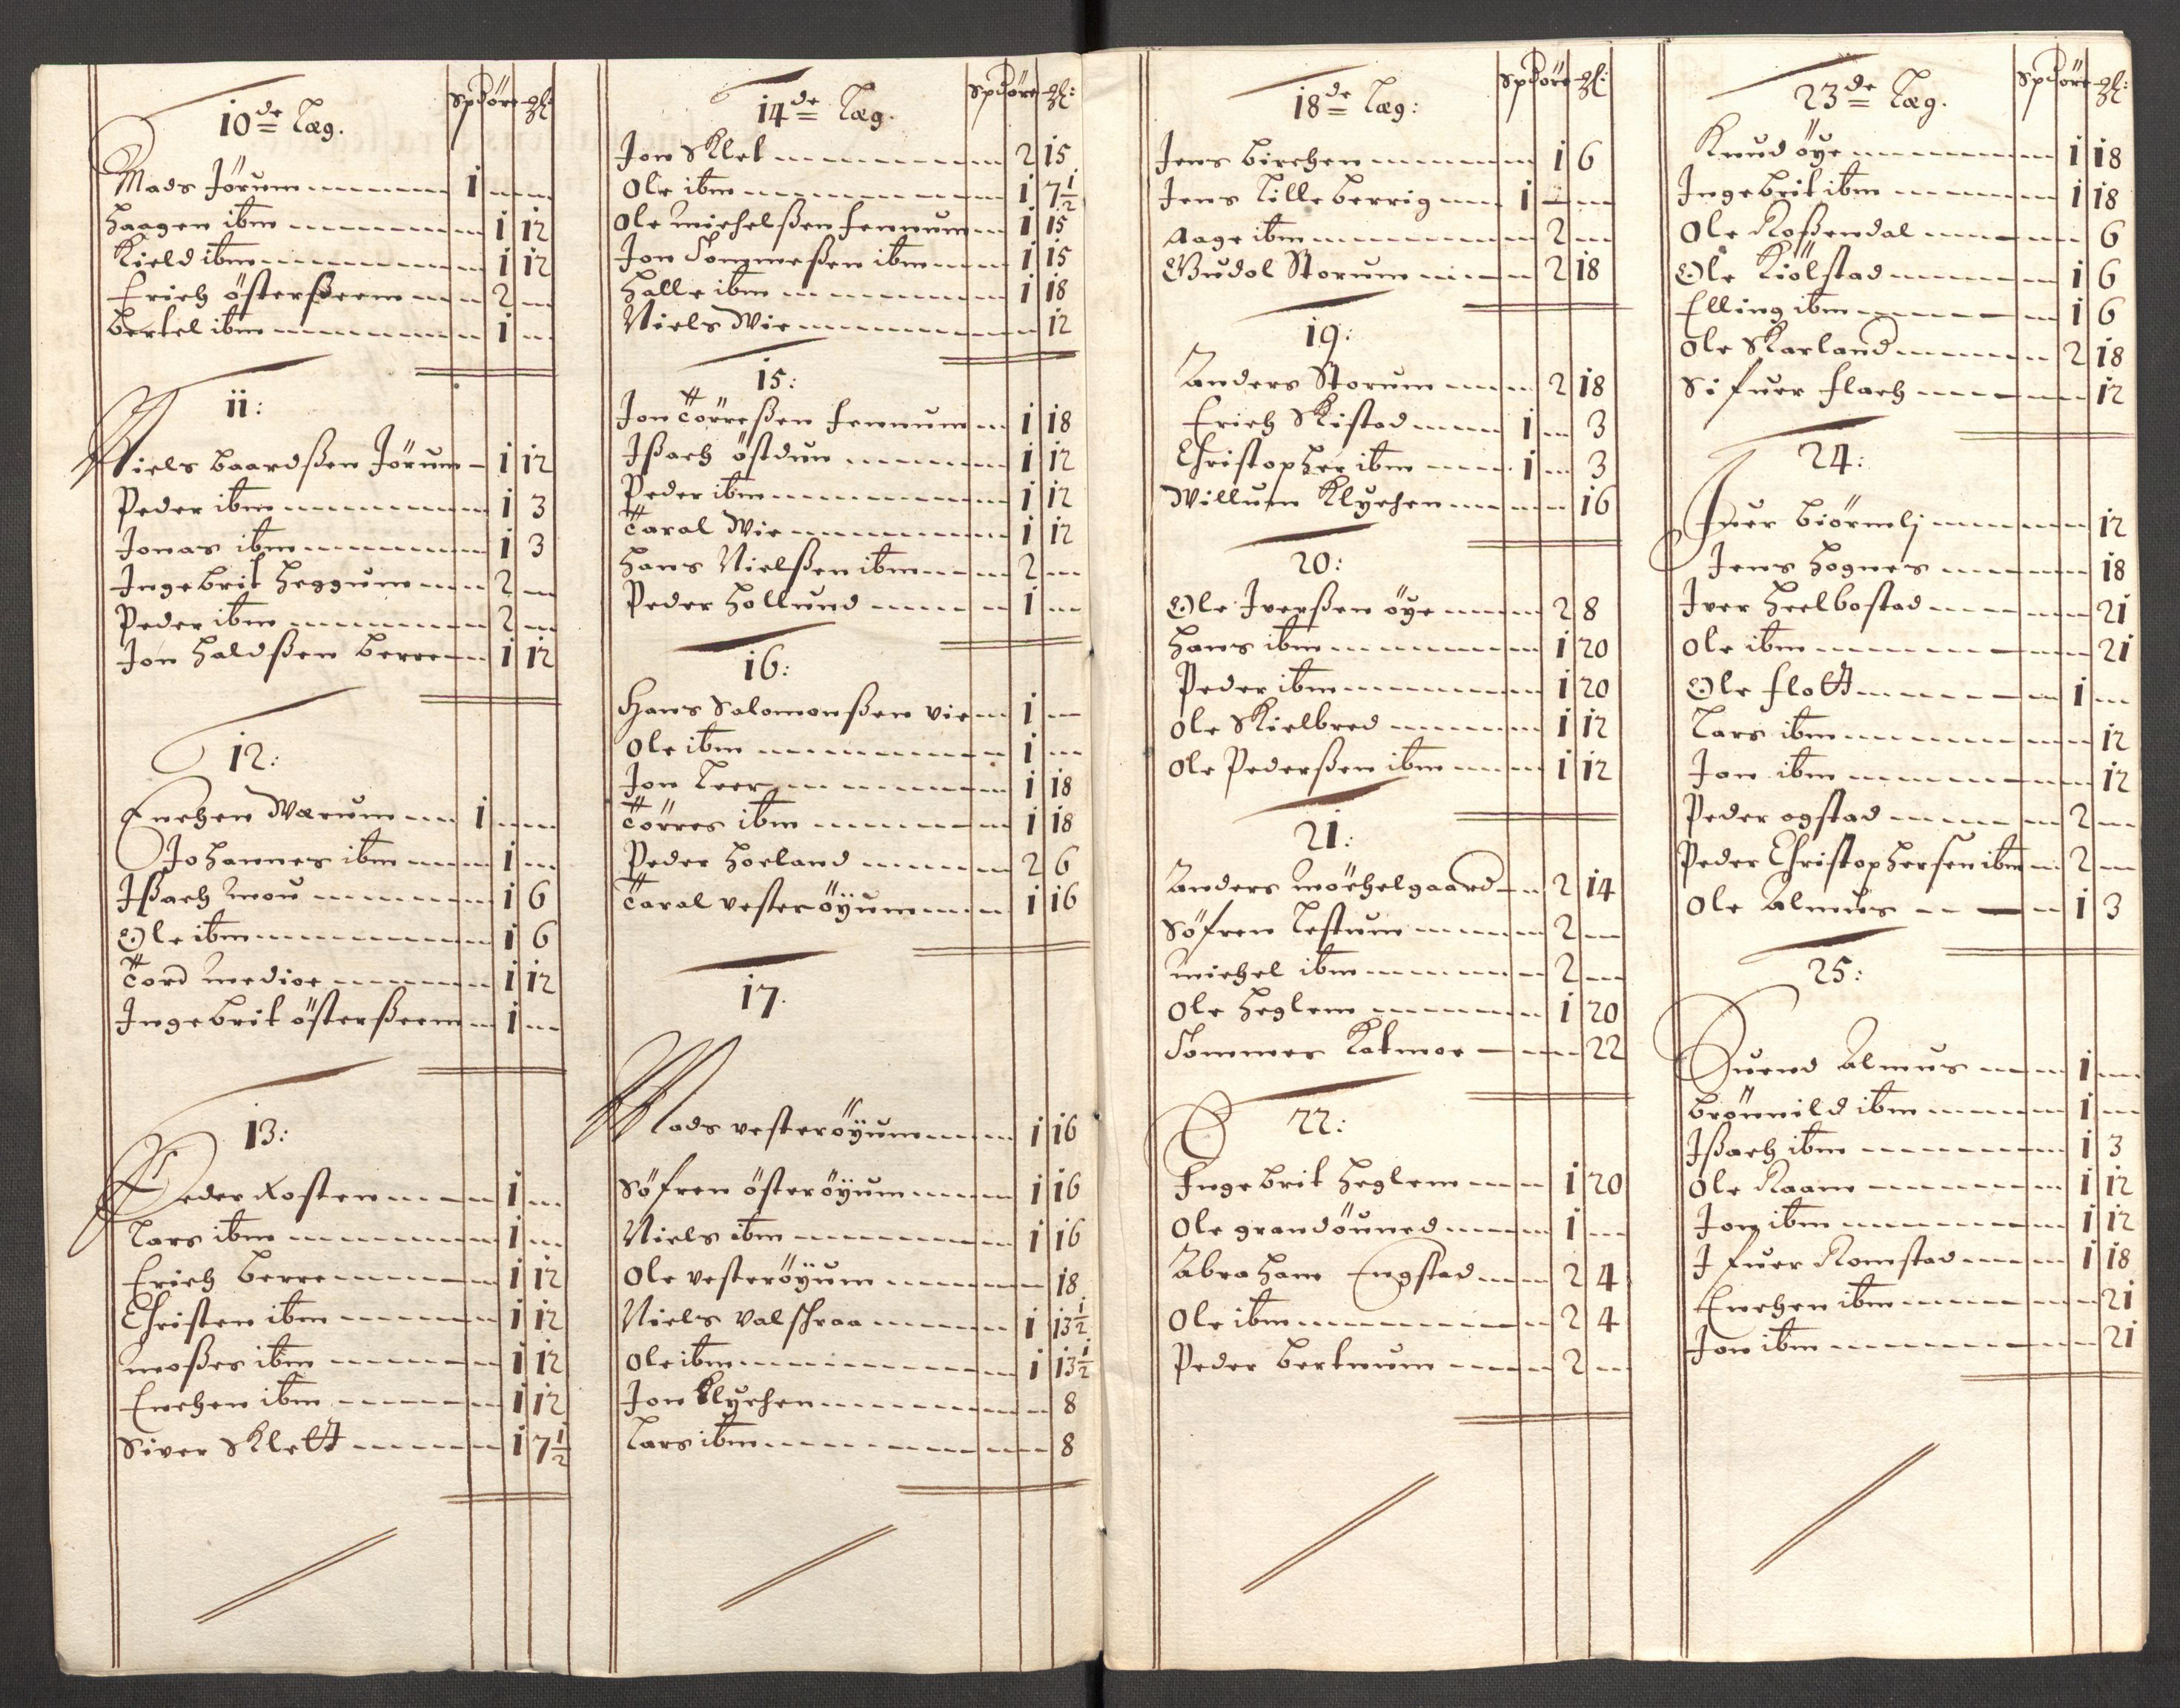 10de Læg.
Spd öre gl:
Mads Jörum 1
Haagen ibm 1 12
Kield ibm 1 12
Erich österßeem 2
Bertel ibm 1
11:
Niels Baardßen Jörum 1 12
Peder ibm 1 3
Jonas ibm 1 3
Ingebrit Heggum 2
Peder ibm 2
Jon Haldßen Berre 1 12
12:
Enchen Wærum 1
Johannes ibm 1
Ißach Mou 1 6
Ole ibm 1 6
Tord Medioe 1 12
Ingebrit österßeem 1
13:
Peder Rosten 1
Lars ibm 1
Erich Berre 1 12
Christen ibm 1 12
Moßes ibm 1 12
Enchen ibm 1 12
Siver Klett 1 7½
14de Læg.
Spd öre gl:
Jon Klet 2 15
Ole ibm 1 7½
Ole Michelßen Fennum 1 15
Jon Sommeßen ibm 1 15
Halle ibm 1 18
Niels Wie 12
15:
Jon Törreßen Fennum 1 18
Ißach östdun 1 12
Peder ibm 1 12
Taral Wie 1 12
Hans Nielßen ibm 2
Peder Hollund 1
16:
Hans Salomonßen Vie 1
Ole ibm 1
Jon Leer 1 18
Törres ibm 1 18
Peder Horland 2 6
Taral Vesteröyum 1 16
17.
Mads Vesteröyum 1 16
Söfren österöyum 1 16
Niels ibm 1 16
Ole Vesteröyum 18
Niels Valschraa 1 13½
Ole ibm 1 13½
Jon Klychen 8
Lars ibm 8
18de Læg:
Spd öre gl:
Jens Birchen 1 6
Jens Lilleberrig 1
Aage ibm 2
Gudol Storum 2 18
19:
Anders Storum 2 18
Erich Kistad 1 3
Christopher ibm 1 3
Willum Klychen 16
20:
Ole Iverßen öye 2 8
Hans ibm 1 20
Peder ibm 1 20
Ole Kielbred 1 12
Ole Pederßen ibm 1 12
21:
Anders Möchelgaard 2 14
Söfren Lestum 2
Michel ibm 2
Ole Heglem 1 20
Sommer Katmoe 22
22:
Ingebrit Heglem 1 20
Ole grandöuned 1
Abraham Engstad 2 4
Ole ibm 2 4
Peder Bertnum 2
23de Læg.
Spd öre gl:
Knud öye 1 18
Ingebrit ibm 1 18
Ole Roßendal 6
Ole Kiölstad 1 6
Elling ibm 1 6
Ole Karland 2 18
Sifuer Flach 12
24:
Ifuer Biörnli 12
Jens Hognes 18
Iver Heelbostad 21
Ole ibm 21
Ole Flott 1
Lars ibm 12
Jon ibm 12
Peder ogstad 2
Peder Christophersen ibm 2
Ole Almus 1 3
25:
Suend Almus 1
Brönnild ibm 1
Ißach ibm 1 3
Ole Raam 1 12
Jon ibm 1 12
Ifuer Romstad 1 18
Enchen ibm 21
Jon ibm 21